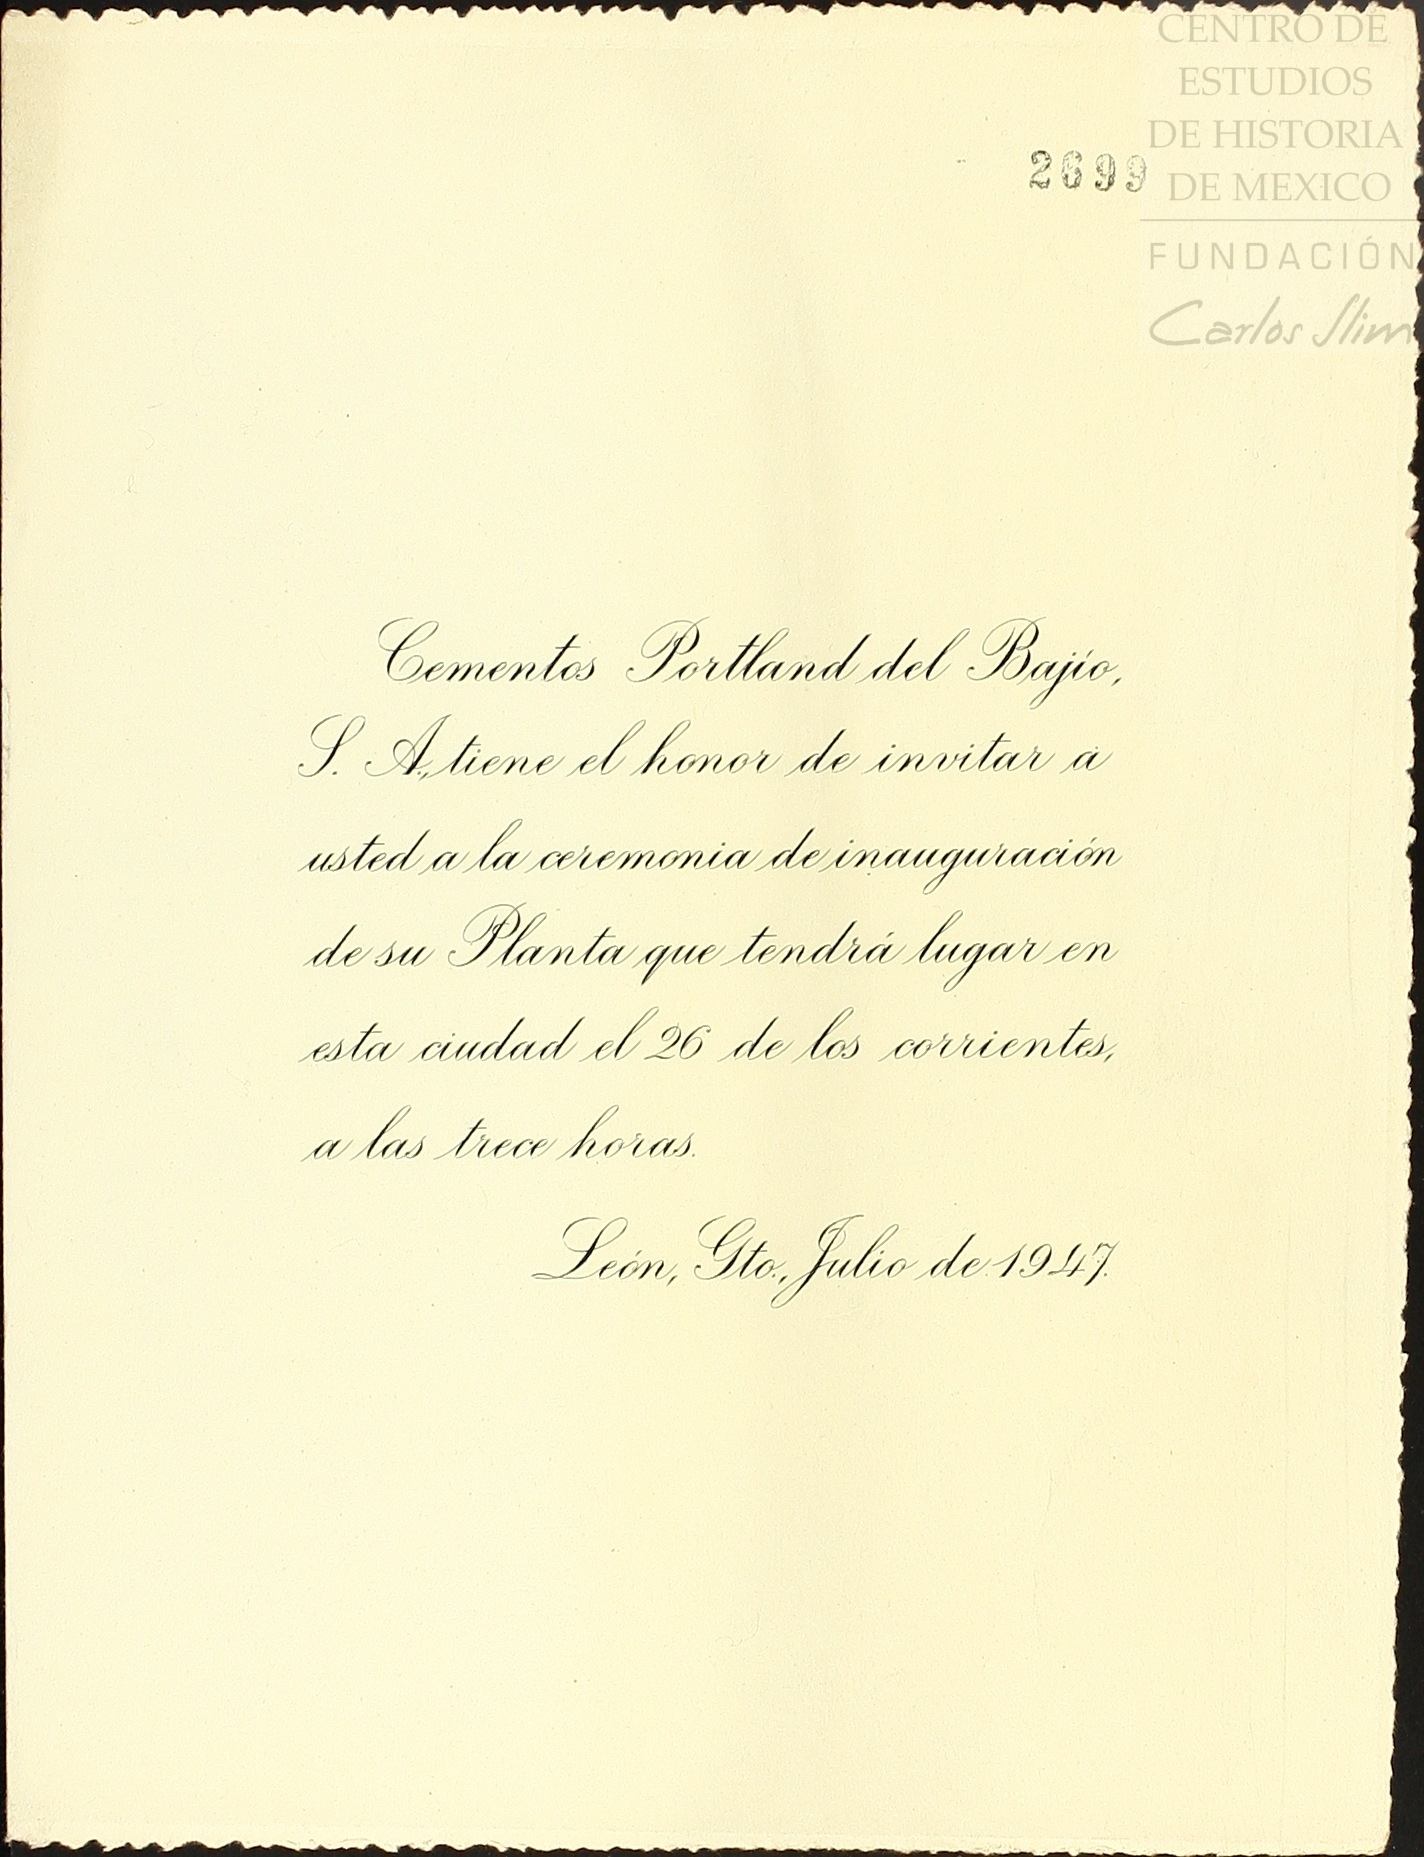 CENTRO DE
ESTUDIOS
DE HISTORIA
DE MEXICO
FUNDACIÓN
Carlos Slim
2699
Cementos Portland del Bajío,
S. A., tiene el honor de invitar a
usted a la ceremonia de inauguración
de su Planta que tendrá lugar en
esta ciudad el 26 de los corrientes,
a las trece horas.
León, Gto., Julio de 1947.